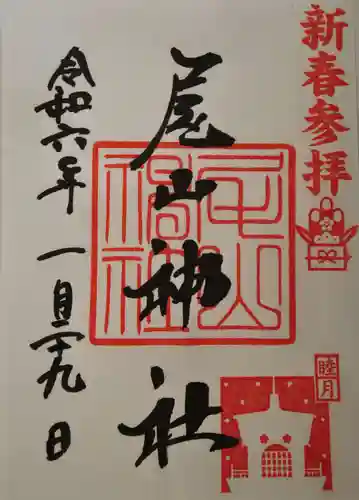 新春参拝
尾山神社
尾山神社
睦月
令和六年 一月二十九日